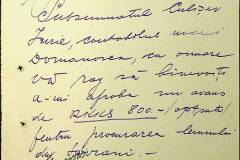 Subsemnatul Culișev
Iurie, contabilul unui
Domanosca, cu onoare
vă rog să binevoiți
a-mi aproba un avans
de 800.-/optsute/
pentru procurarea lemnului
din